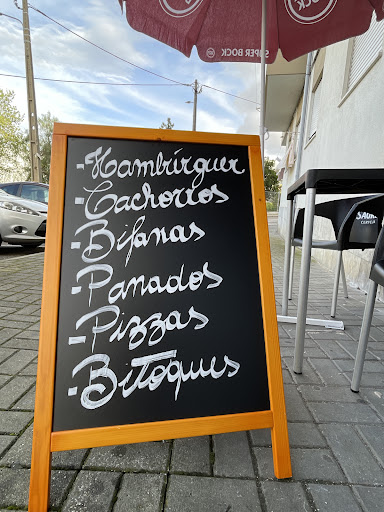 SUPER BOCK
-Hambúrguer
-Cachorros
-Bifanas
-Panados
-Pizzas
-Bitoques